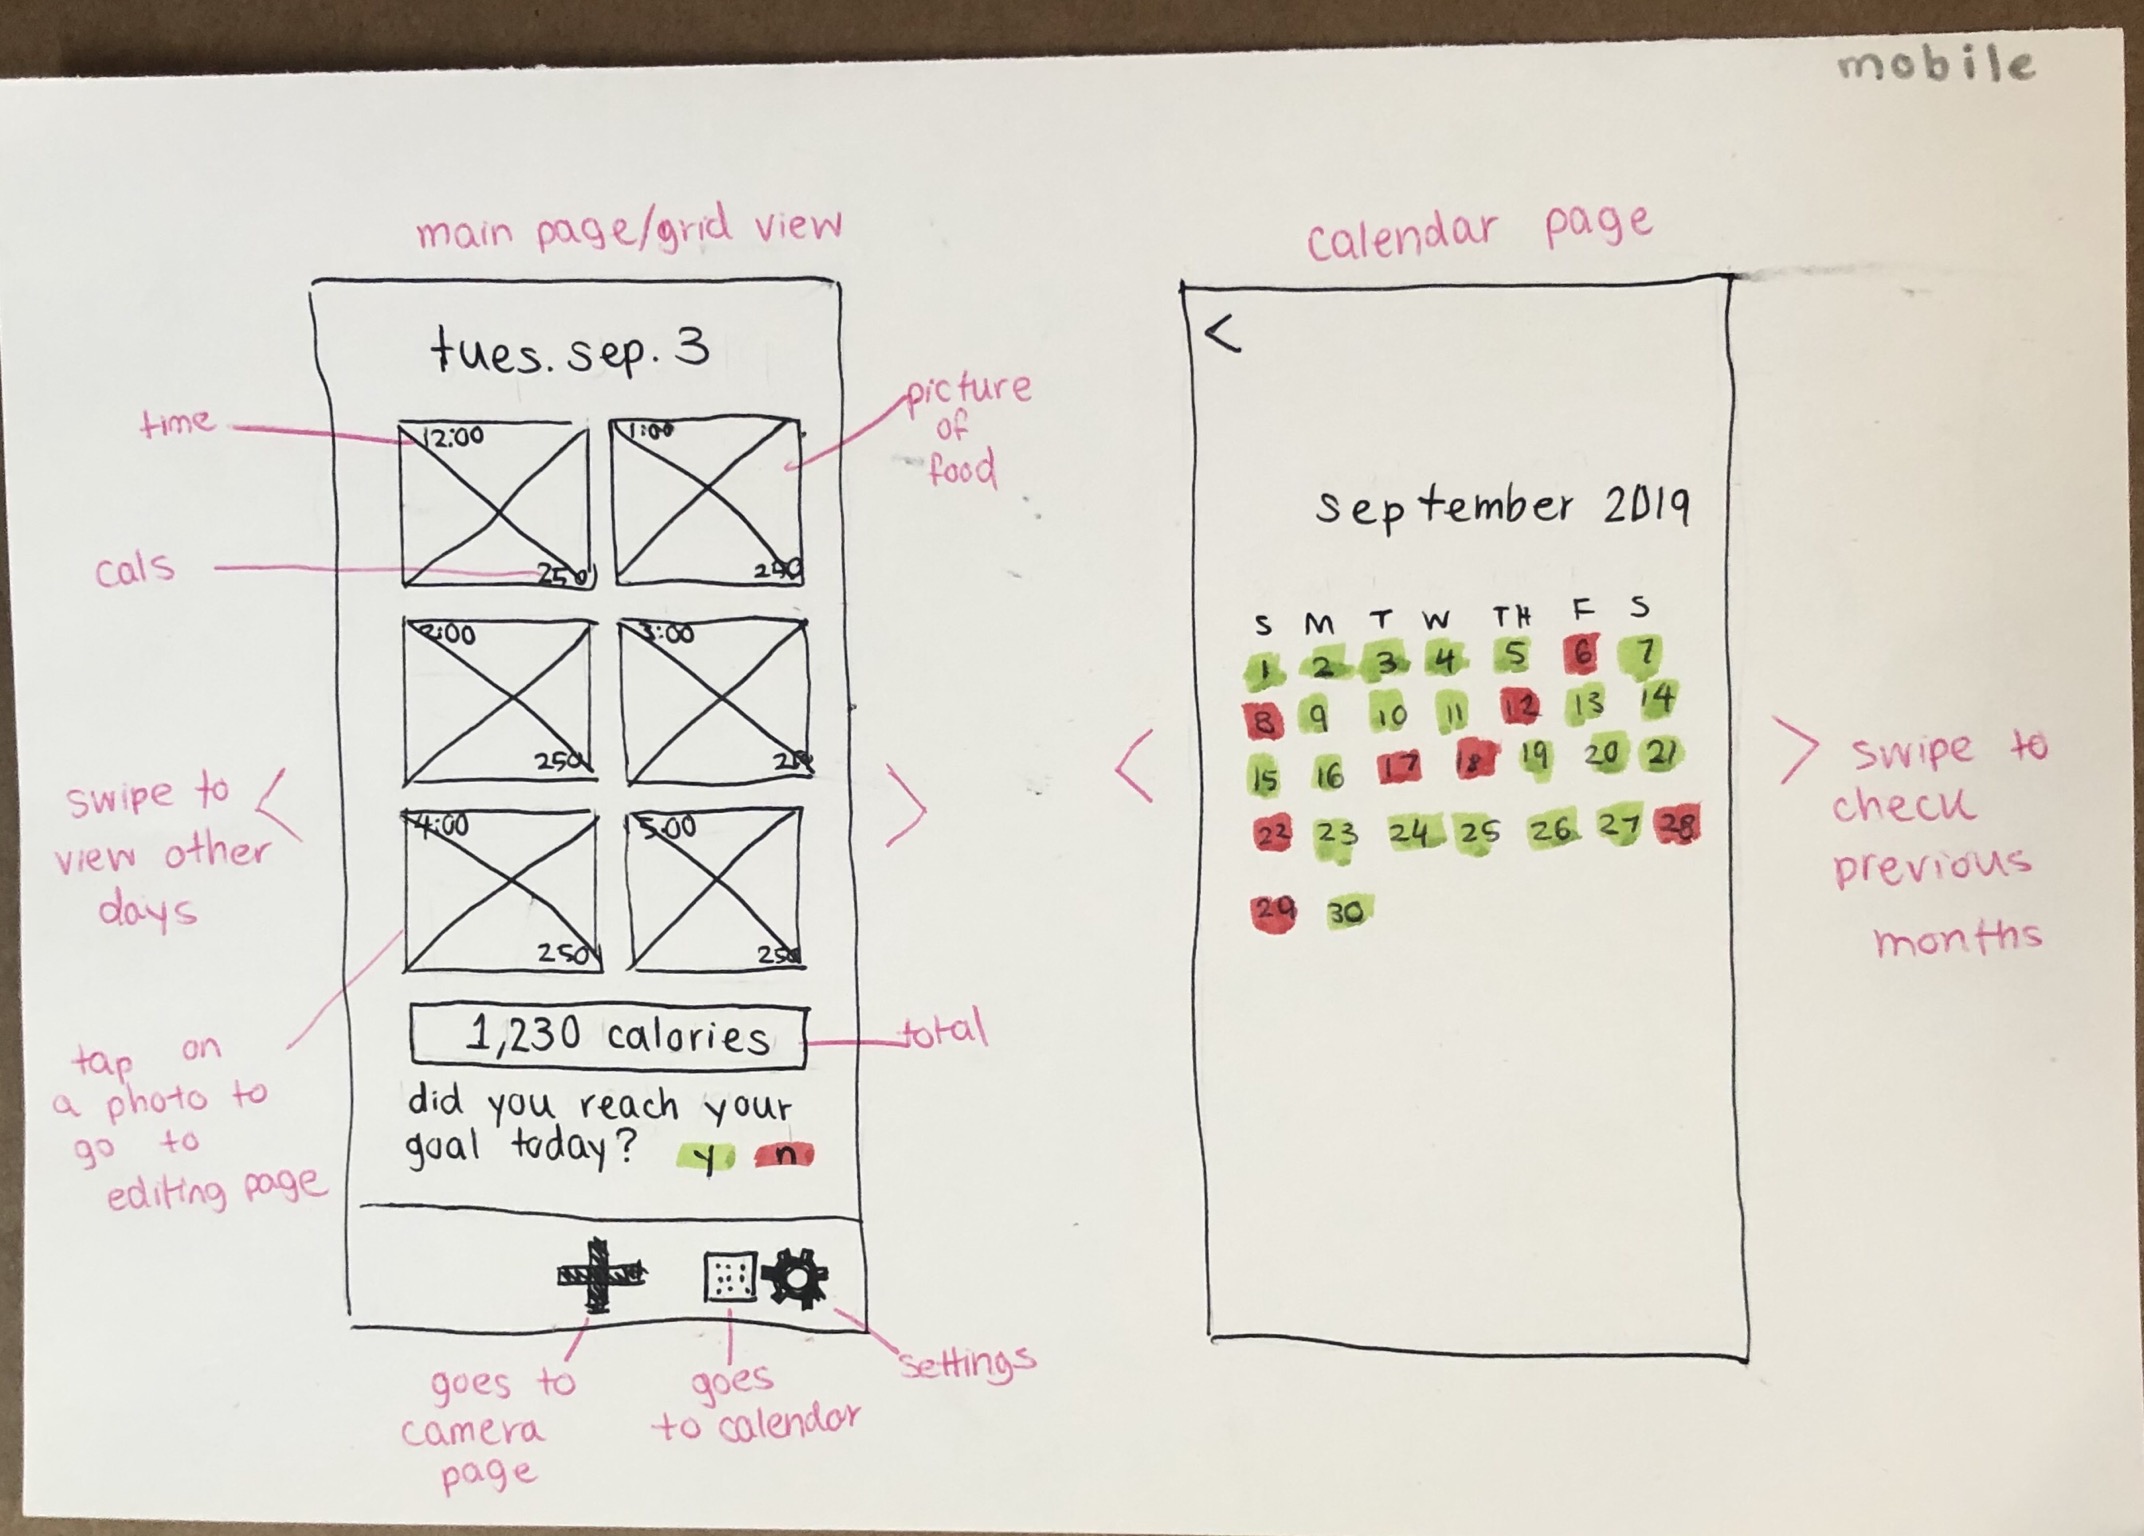 mobile
main page/grid view
tues. sep. 3
time
picture
of
food
12:00
1:00
cals
250
250
2:00
3:00
250
250
swipe to
view other
days
4:00
5:00
250
250
tap on
a photo to
go to
editing page
1,230 calories
total
did you reach your
goal today? y n
goes to
camera
page
goes
to calendar
settings
calendar page
<
september 2019
S M T W TH F S
1 2 3 4 5 6 7
8 9 10 11 12 13 14
15 16 17 18 19 20 21
22 23 24 25 26 27 28
29 30
swipe to
check
previous
months